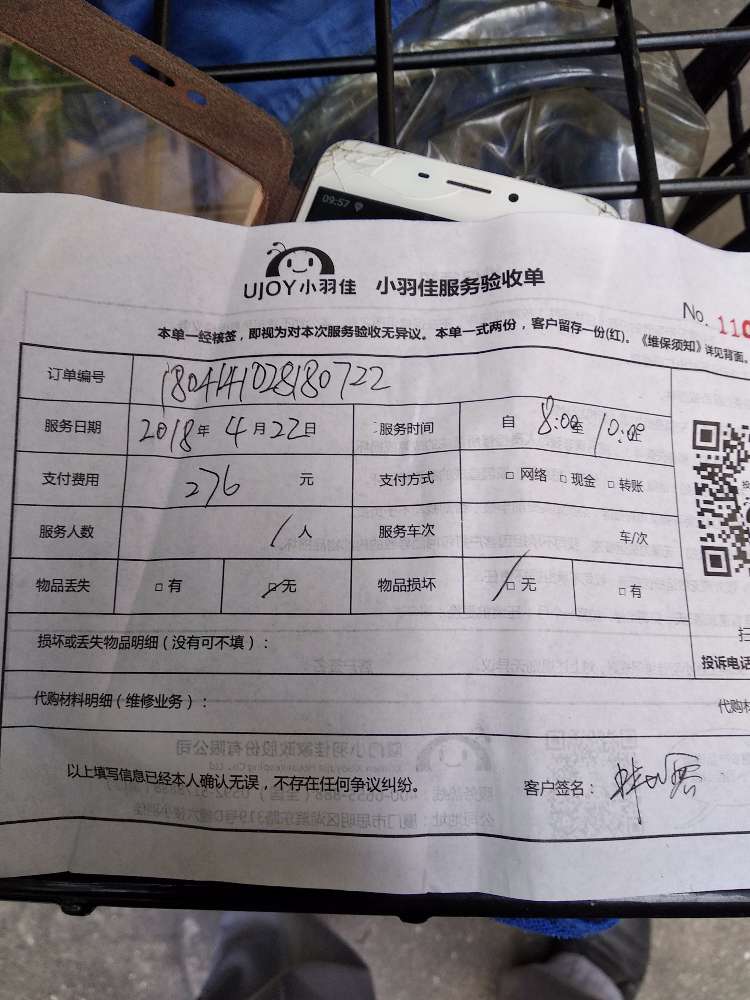 09:57
UJOY小羽佳 小羽佳服务验收单
No. 110
本单一经核签，即视为对本次服务验收无异议。本单一式两份，客户留存一份(红)。《维保须知》详见背面。
订单编号 1804141028180722
服务日期 2018年 4月22日 服务时间 自 8:00至 10:00止
支付费用 276 元 支付方式 □ 网络 □ 现金 □ 转账
服务人数 1人 服务车次 车/次
物品丢失 □ 有 □ 无 物品损坏 □ 无 □ 有
损坏或丢失物品明细（没有可不填）：
投诉电话
代购材料明细（维修业务）： 代购材
以上填写信息已经本人确认无误，不存在任何争议纠纷。 客户签名：